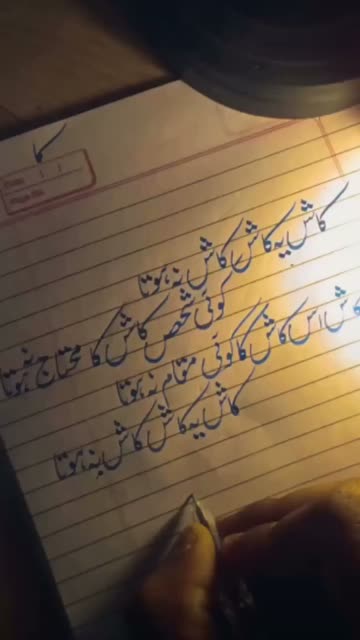 کاش یہ کاش کاش نہ ہوتا
کوئی شخص کاش کا محتاج نہ ہوتا
کاش اس کاش کا کوئی مقام نہ ہوتا
کاش یہ کاش کاش نہ ہوتا
Date
Page No.